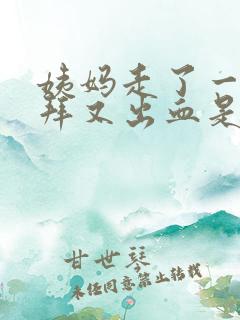 姨妈走了一
拜又出血是
甘世琴
未经同意,禁止转载